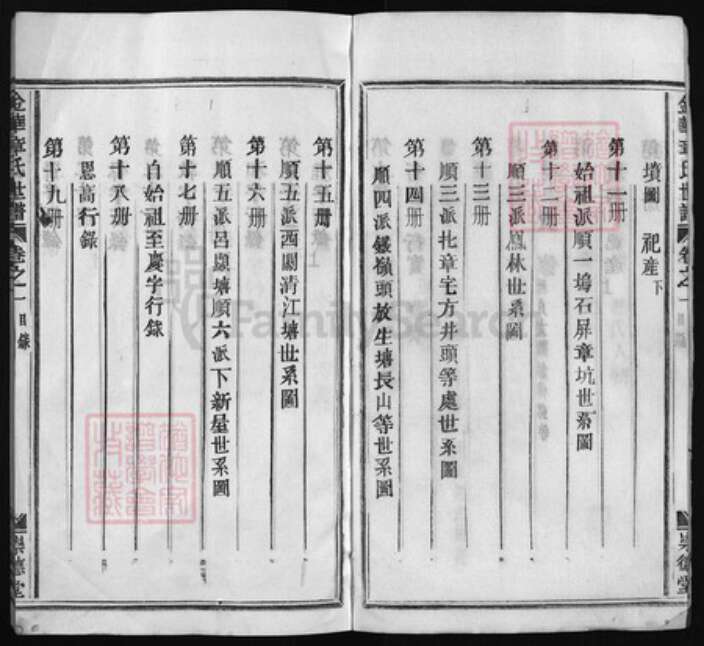 金華章氏世譜 卷之一 目錄 崇德堂
墳圖 祀產下
第十一册
始祖派順一塢石屏章坑世系圖
第十二册
順三派鳳林世系圖
第十三册
順三派北章宅方井頭等處世系圖
第十四册
順四派嶺頭放生塘長山等世系圖
第十五册
順五派西關清江塘世系圖
第十六册
順五派呂塘順六派下新屋世系圖
第十七册
自始祖至慶字行錄
第十八册
恩高行錄
第十九册
金華章氏世譜 卷之一 目錄 崇德堂
FamilySearch